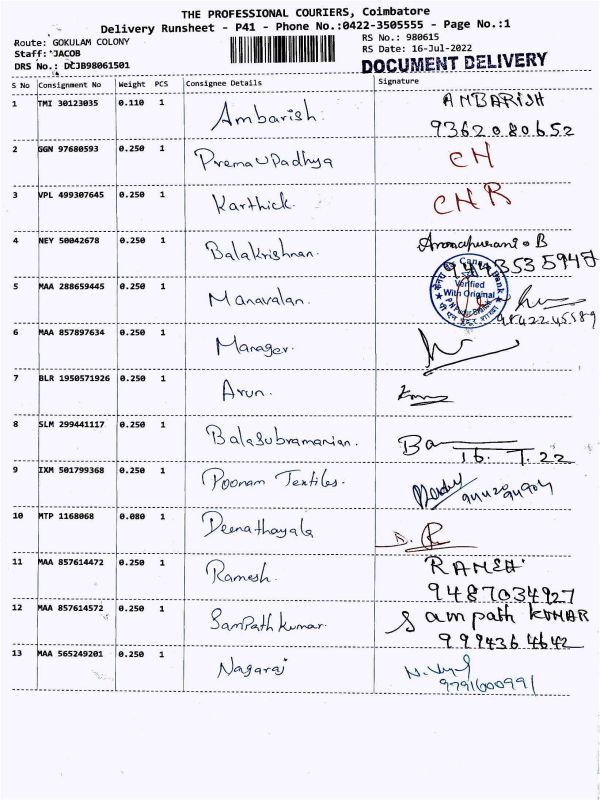 THE PROFESSIONAL COURIERS, Coimbatore
Delivery Runsheet - P41 - Phone No.:0422-3505555 - Page No.:1
Route: GOKULAM COLONY
RS No.: 980615
Staff: JACOB
RS Date: 16-Jul-2022
DRS No.: DCJB98061501
DOCUMENT DELIVERY
S No Consignment No Weight PCS Consignee Details Signature
1 TMI 30123035 0.110 1 Ambarish. AMBARISH
9362080652
2 GGN 97680593 0.250 1 Prema UPadhya CH
3 VPL 499307645 0.250 1 Karthick. CHR
4 NEY 50042678 0.250 1 Balakrishnan. Annapurani . B
9443535947
5 MAA 288659445 0.250 1 Manavalan.
Canara Bank
Verified
With Original
9842245589
6 MAA 857897634 0.250 1 Manager.
7 BLR 1950571926 0.250 1 Arun.
8 SLM 299441117 0.250 1 BalaSubramanian. Ba
16.7.22
9 IXM 501799368 0.250 1 Poonam Textiles.
10 MTP 1168068 0.080 1 Deenathayala
11 MAA 857614472 0.250 1 Ramesh. RAMESH
9487034927
12 MAA 857614572 0.250 1 SamPath kumar. Sampath KUMAR
9994364642
13 MAA 565249201 0.250 1 Nagaraj
9791600991